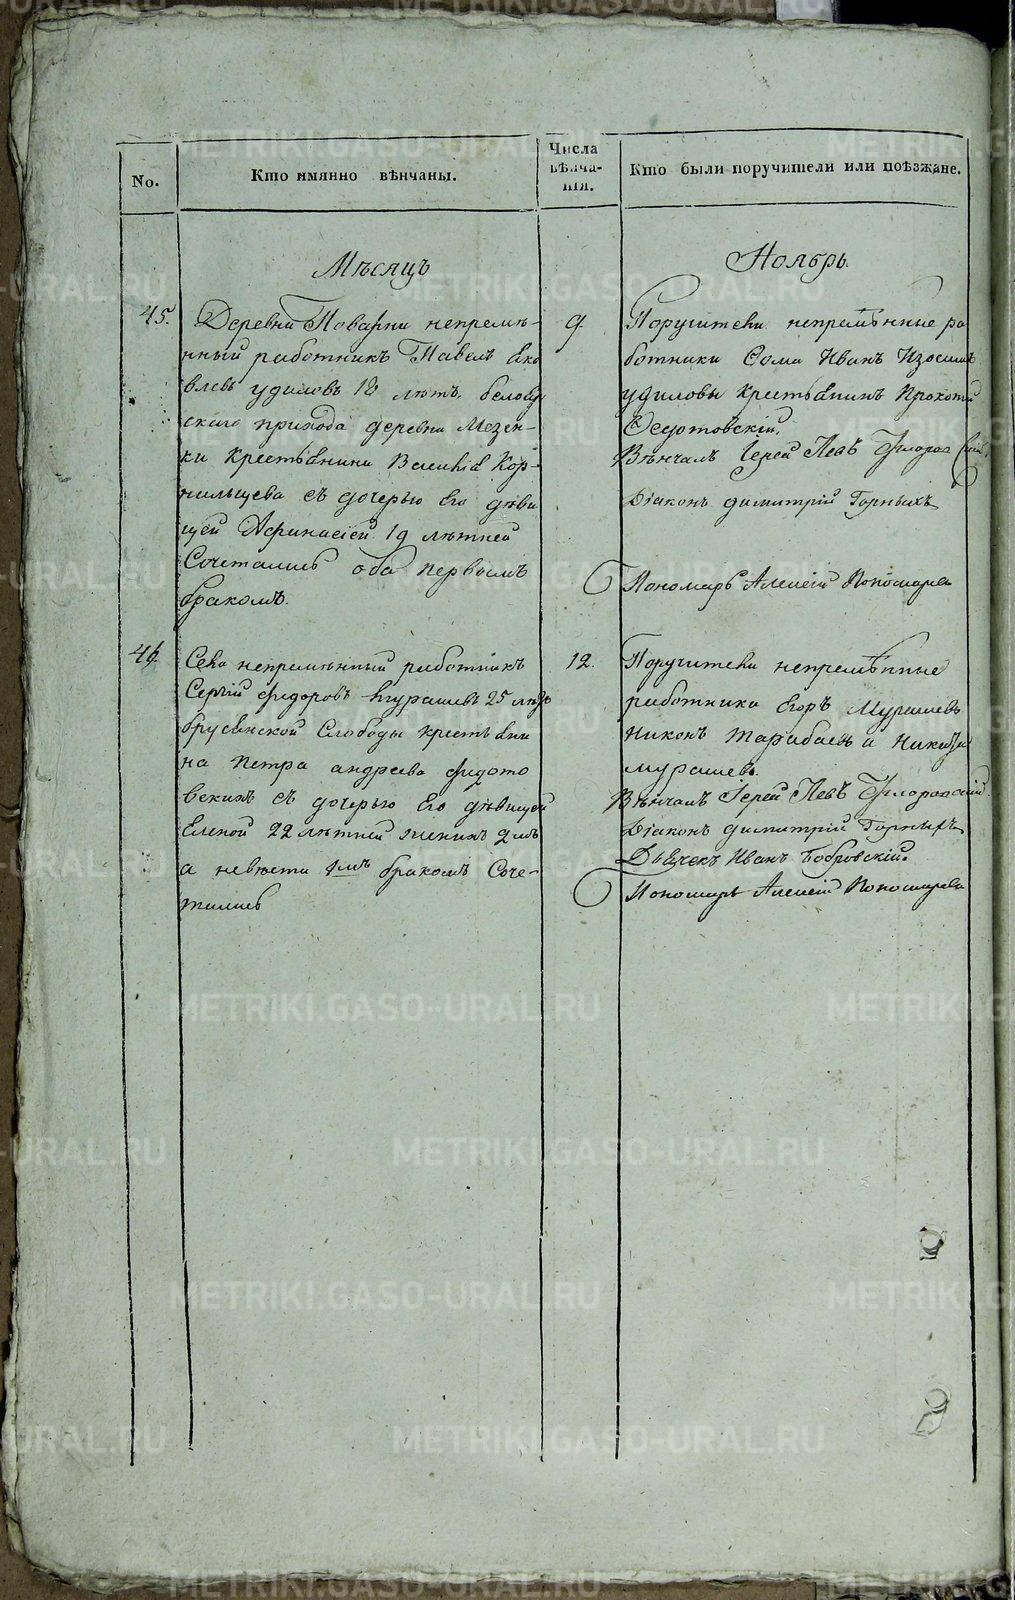 No.
Кто имянно вѣнчаны.
Числа вѣнча-
нія.
Кто были поручители или поѣзжане.
Мѣсяцъ
Ноябрь.
45.
Деревни Поварни непремѣ-
нный работникъ Павелъ Яко
влевъ удиловъ 18 лѣтъ, белояр
скаго прихода деревни Мезен-
ки крестьянина Василія Кор-
нильцева съ дочерью Его дѣви
цей Афанасіей 19 лѣтней
Сочетались оба первымъ
бракомъ.
9.
Поручители непремѣнные ра
ботники Сома Иванъ Изосима
удиловы крестьянинъ Прокопій
Ѳедотовскій.
Вѣнчалъ Іерей Левъ Флоровскій
Діаконъ димитрій Горныхъ
Пономарь Алексій Пономарев
46.
Села непремѣнный работникъ
Сергій федоровъ Мурашевъ 25 лѣтъ
брусянской Слободы крестьяни
на Петра андреева федото
вскихъ съ дочерью Его дѣвицей
Еленой 22 лѣтней женихъ 2мъ
а невѣста 1мъ бракомъ Соче-
тались
12.
Поручители непремѣнные
работники Егоръ Мурашевъ
Никонъ Тарабаевъ а Никита
мурашевъ.
Вѣнчалъ Іерей Левъ Флоровскій
Діаконъ димитрій Горныхъ
Дьячекъ Иванъ Бобровскій.
Пономарь Алексій Пономарева
METRIKI.GASO-URAL.RU